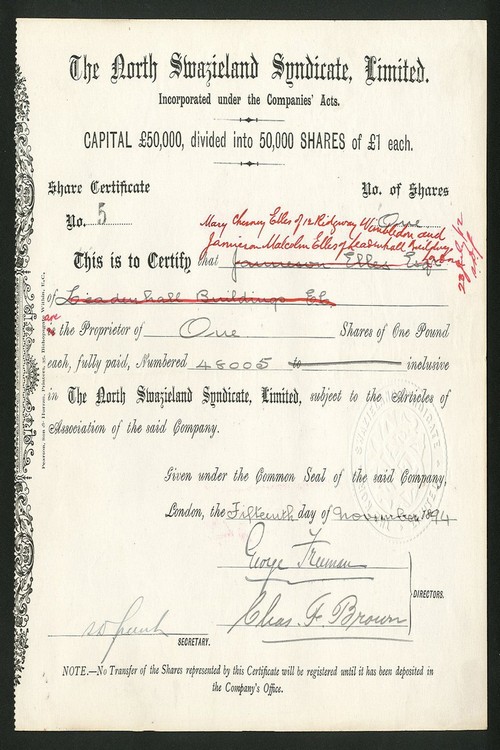 The North Swazieland Syndicate, Limited.
Incorporated under the Companies' Acts.
CAPITAL £50,000, divided into 50,000 SHARES of £1 each.
Share Certificate No. of Shares
No. 5 One
Mary Chesney Elles of 12 Ridgway Wimbledon and
Jamieson Malcolm Elles of Leadenhall Buildings
This is to Certify that Jamieson Elles Esqr
of Leadenhall Buildings E.C.
are
is the Proprietor of One Shares of One Pound
each, fully paid, Numbered 48005 to inclusive
in The North Swazieland Syndicate, Limited, subject to the Articles of
Association of the said Company.
Given under the Common Seal of the said Company,
London, the Fifteenth day of November 1894
George Freeman
Chas. F. Brown
DIRECTORS.
SECRETARY.
NOTE.—No Transfer of the Shares represented by this Certificate will be registered until it has been deposited in
the Company's Office.